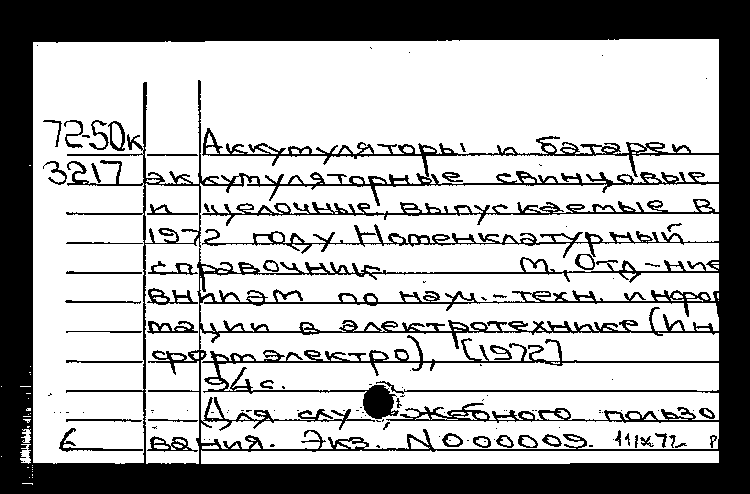 72-50к Аккумуляторы и батареи
3217 аккумуляторные свинцовые
и щелочные, выпускаемые в
1972 году. Номенклатурный
справочник. М., Отд-ние
ВНИИЭМ по науч.-техн. инфор
мации в электротехнике (Ин
формэлектро), [1972]
94 с.
Для служебного пользо
6 вания. Экз. N000009. 11/IX72